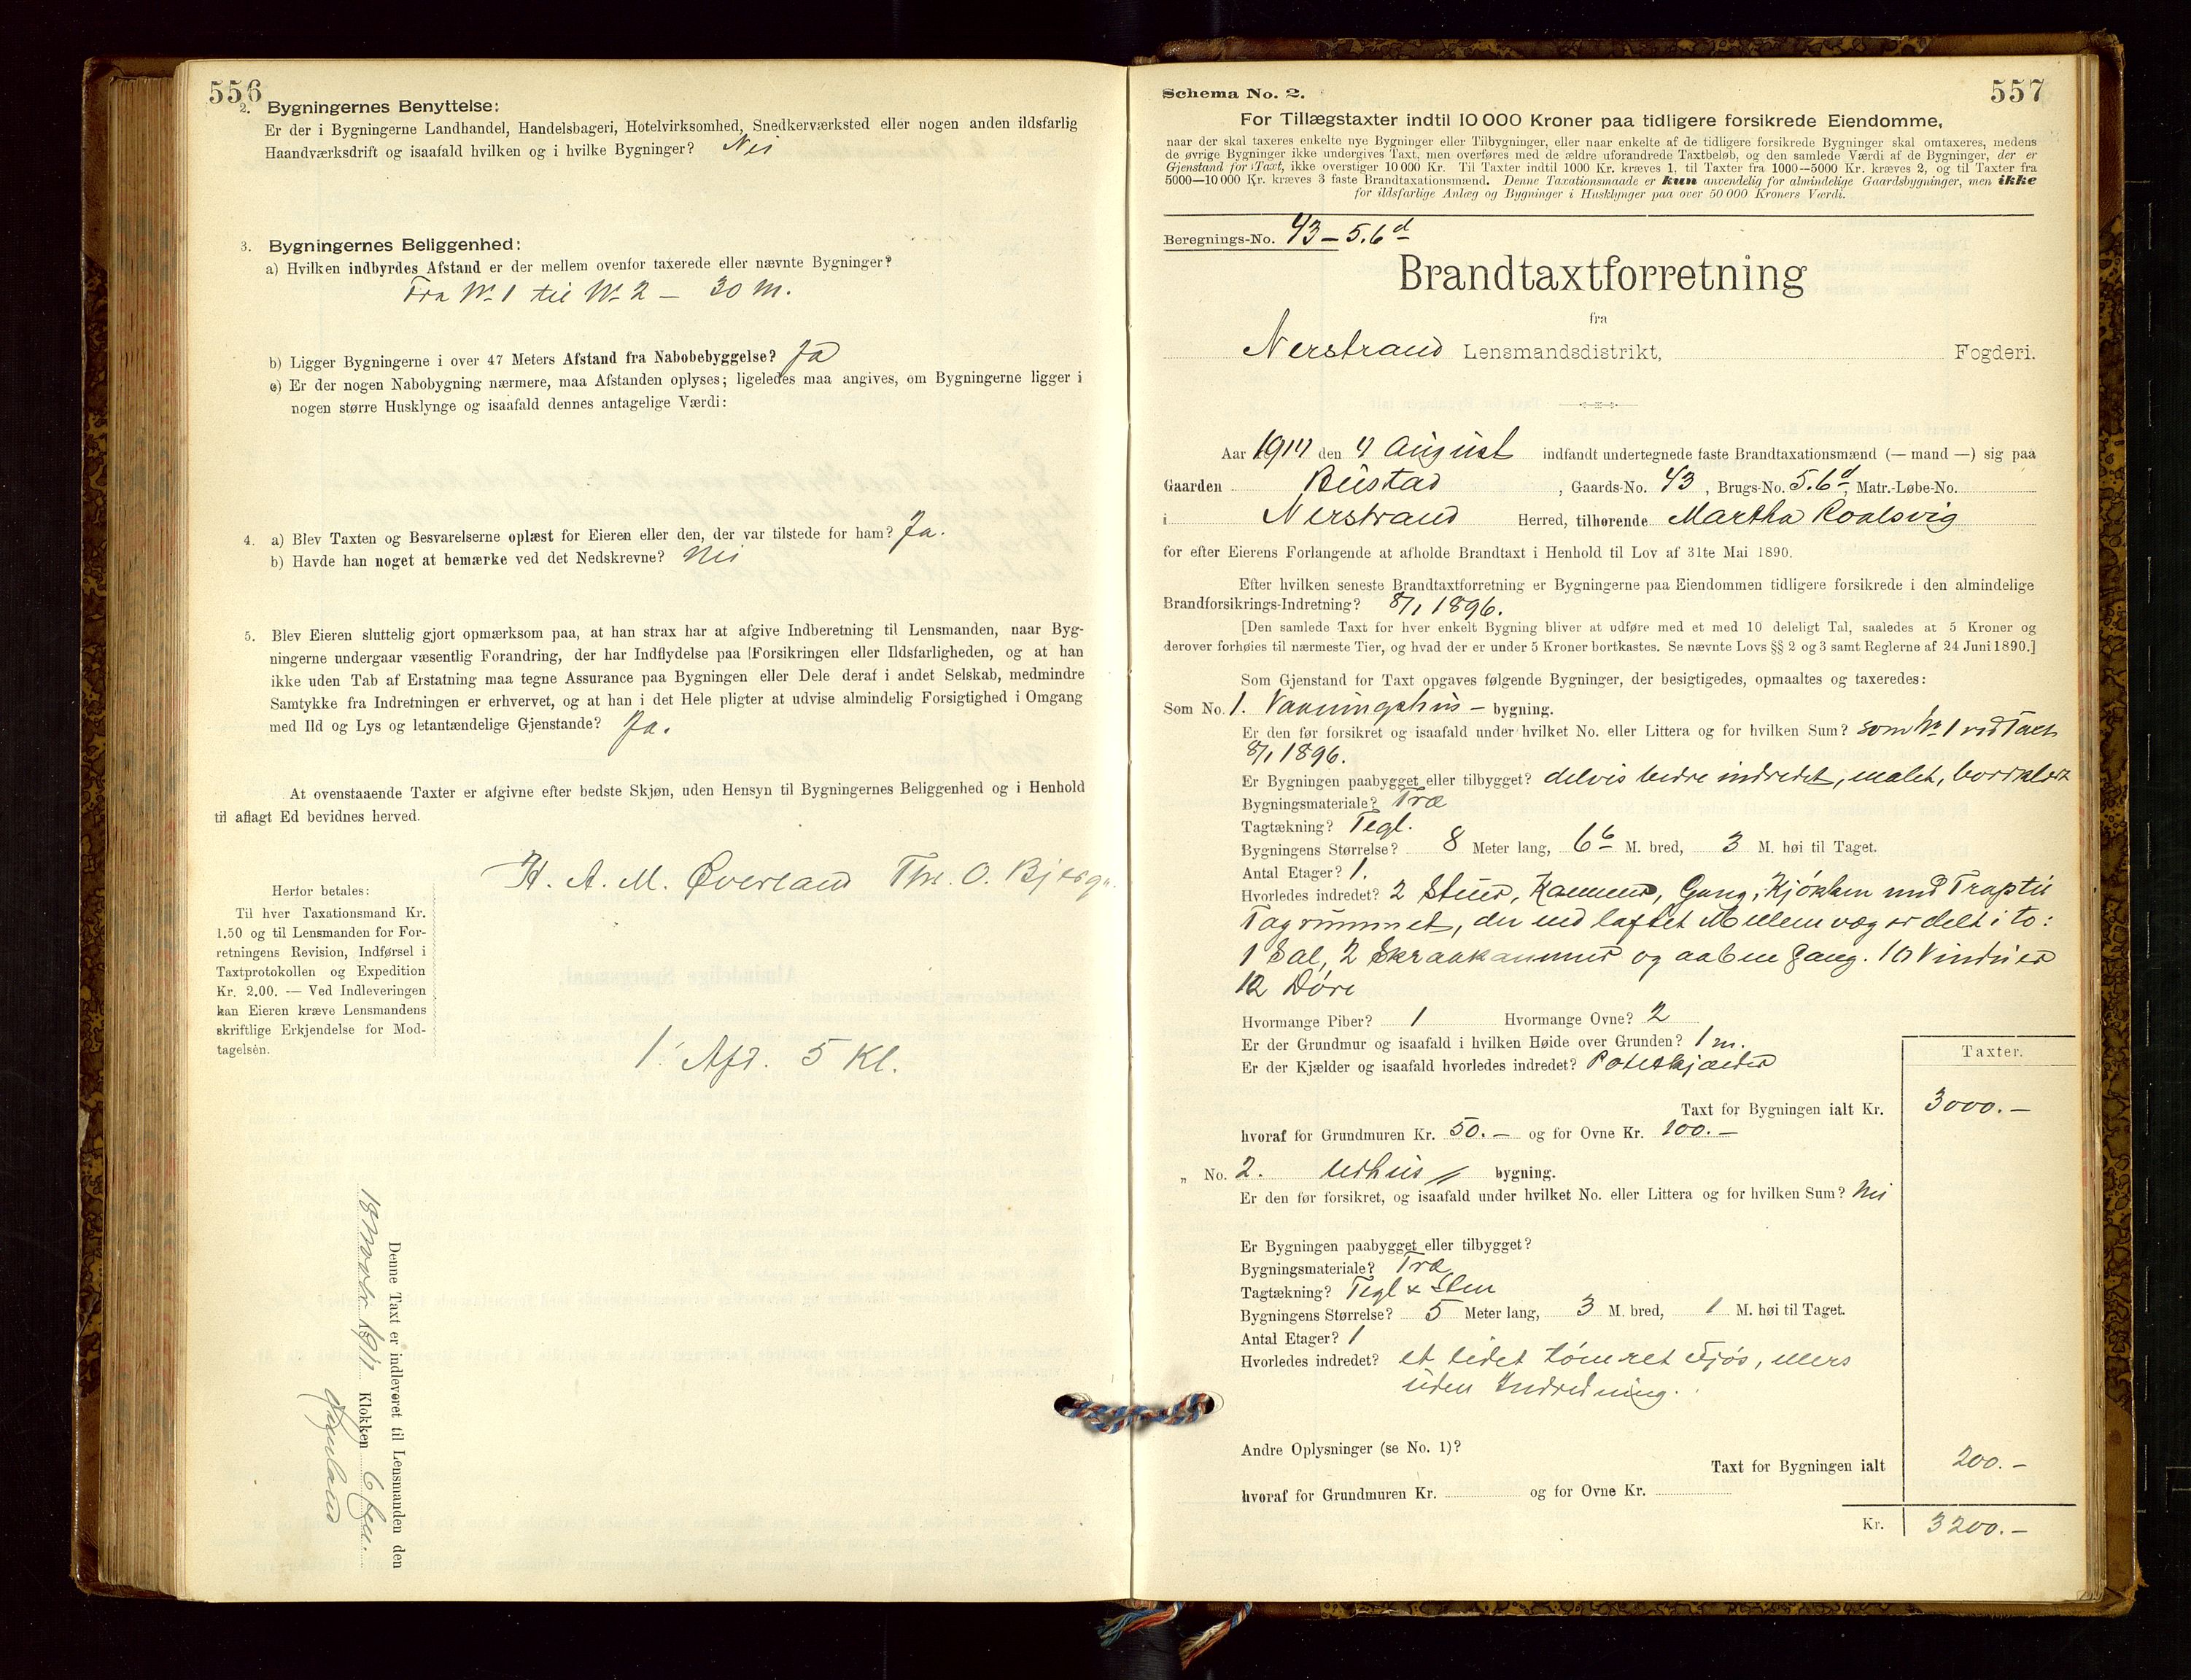 556
2. Bygningernes Benyttelse:
Er der i Bygningerne Landhandel, Handelsbageri, Hotelvirksomhed, Snedkerværksted eller nogen anden ildsfarlig
Haandværksdrift og isaafald hvilken og i hvilke Bygninger? Nei
3. Bygningernes Beliggenhed:
a) Hvilken indbyrdes Afstand er der mellem ovenfor taxerede eller nævnte Bygninger?
Fra No 1 til No 2 — 30 M.
b) Ligger Bygningerne i over 47 Meters Afstand fra Nabobebyggelse? Ja
c) Er der nogen Nabobygning nærmere, maa Afstanden oplyses; ligeledes maa angives, om Bygningerne ligger i
nogen større Husklynge og isaafald dennes antagelige Værdi:
4. a) Blev Taxten og Besvarelserne oplæst for Eieren eller den, der var tilstede for ham? Ja.
b) Havde han noget at bemærke ved det Nedskrevne? Nei
5. Blev Eieren sluttelig gjort opmærksom paa, at han strax har at afgive Indberetning til Lensmanden, naar Byg-
ningerne undergaar væsentlig Forandring, der har Indflydelse paa Forsikringen eller Ildsfarligheden, og at han
ikke uden Tab af Erstatning maa tegne Assurance paa Bygningen eller Dele deraf i andet Selskab, medmindre
Samtykke fra Indretningen er erhvervet, og at han i det Hele pligter at udvise almindelig Forsigtighed i Omgang
med Ild og Lys og letantændelige Gjenstande? Ja.
At ovenstaaende Taxter er afgivne efter bedste Skjøn, uden Hensyn til Bygningernes Beliggenhed og i Henhold
til aflagt Ed bevidnes herved.
H. A. M. Øverland Ths. O. Bjerga.
Herfor betales:
Til hver Taxationsmand Kr.
1.50 og til Lensmanden for For-
retningens Revision, Indførsel i
Taxtprotokollen og Expedition
Kr. 2.00. — Ved Indleveringen
kan Eieren kræve Lensmandens
skriftlige Erkjendelse for Mod-
tagelsen.
1. Afd. 5 Kl.
Denne Taxt er indleveret til Lensmanden den
18 Novbr 1914 Klokken 6 Em.
557
Schema No. 2.
For Tillægstaxter indtil 10 000 Kroner paa tidligere forsikrede Eiendomme,
naar der skal taxeres enkelte nye Bygninger eller Tilbygninger, eller naar enkelte af de tidligere forsikrede Bygninger skal omtaxeres, medens
de øvrige Bygninger ikke undergives Taxt, men overføres med de ældre uforandrede Taxtbeløb, og den samlede Værdi af de Bygninger, der er
Gjenstand for Taxt, ikke overstiger 10 000 Kr. Til Taxter indtil 1000 Kr. kræves 1, til Taxter fra 1000—5000 Kr. kræves 2, og til Taxter fra
5000—10 000 Kr. kræves 3 faste Brandtaxationsmænd. Denne Taxationsmaade er kun anvendelig for almindelige Gaardsbygninger, men ikke
for ildsfarlige Anlæg og Bygninger i Husklynger paa over 50 000 Kroners Værdi.
Beregnings-No. 43 — 5.6d
Brandtaxtforretning
fra
Nerstrand Lensmandsdistrikt, Fogderi.
Aar 1914 den 4 August indfandt undertegnede faste Brandtaxationsmænd (— mand —) sig paa
Gaarden Bustad, Gaards-No. 43, Brugs-No. 5.6d, Matr.-Løbe-No.
i Nerstrand Herred, tilhørende Martha Roalsvig
for efter Eierens Forlangende at afholde Brandtaxt i Henhold til Lov af 31te Mai 1890.
Efter hvilken seneste Brandtaxtforretning er Bygningerne paa Eiendommen tidligere forsikrede i den almindelige
Brandforsikrings-Indretning? 8/1 1896.
[Den samlede Taxt for hver enkelt Bygning bliver at udføre med et med 10 deleligt Tal, saaledes at 5 Kroner og
derover forhøies til nærmeste Tier, og hvad der er under 5 Kroner bortkastes. Se nævnte Lovs §§ 2 og 3 samt Reglerne af 24 Juni 1890.]
Som Gjenstand for Taxt opgaves følgende Bygninger, der besigtigedes, opmaaltes og taxeredes:
Som No. 1. Vaaningshus — bygning.
Er den før forsikret og isaafald under hvilket No. eller Littera og for hvilken Sum? som No 1 ved Taxt
8/1 1896.
Er Bygningen paabygget eller tilbygget? delvis bedre indredet, malet, bordklædt
Bygningsmateriale? Træ
Tagtækning? Tegl.
Bygningens Størrelse? 8 Meter lang, 6 6 M. bred, 3 M. høi til Taget.
Antal Etager? 1.
Hvorledes indredet? 2 Stuer, Kammer, Gang, Kjøkken med Trap til
Tagrummet, der ved loftet Mellemvæg er delt i to:
1 Sal, 2 Skraakammer og aaben Gang. 10 Vinduer
12 Døre
Hvormange Piber? 1 Hvormange Ovne? 2
Er der Grundmur og isaafald i hvilken Høide over Grunden? 1 m.
Er der Kjælder og isaafald hvorledes indredet? Potetkjælder
Taxter.
Taxt for Bygningen ialt Kr. 3000.—
hvoraf for Grundmuren Kr. 50.— og for Ovne Kr. 100.—
„ No. 2. Udhus bygning.
Er den før forsikret, og isaafald under hvilket No. eller Littera og for hvilken Sum? Nei
Er Bygningen paabygget eller tilbygget?
Bygningsmateriale? Træ
Tagtækning? Tegl & Sten
Bygningens Størrelse? 5 Meter lang, 3 M. bred, 1 M. høi til Taget.
Antal Etager? 1
Hvorledes indredet? et lidet tømret Fjøs, ellers
uden Indredning.
Andre Oplysninger (se No. 1)?
Taxt for Bygningen ialt 200.—
hvoraf for Grundmuren Kr. og for Ovne Kr.
Kr. 3200.—